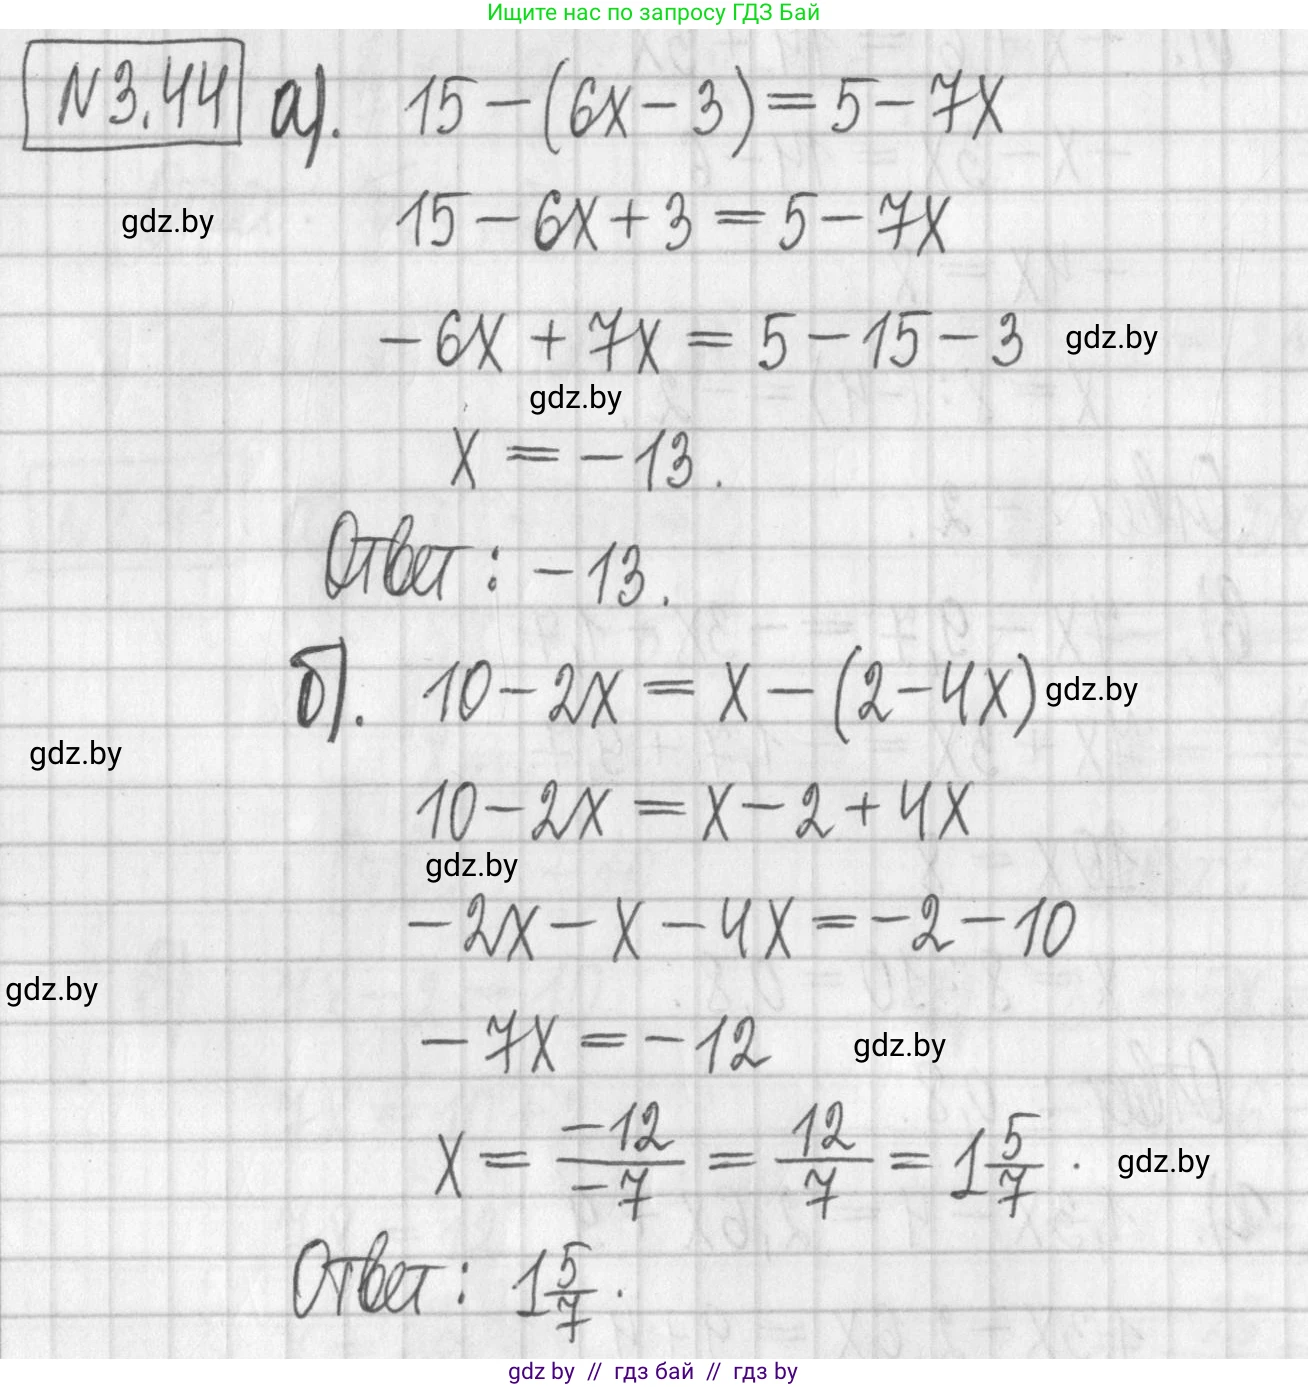 Ищите нас по запросу ГДЗ Бай
N3.44 а). 15-(6x-3)=5-7x
gdz.by 15-6x+3=5-7x
-6x+7x=5-15-3 gdz.by
gdz.by
x=-13.
Ответ: -13.
б). 10-2x=x-(2-4x) gdz.by
gdz.by
10-2x=x-2+4x
gdz.by
-2x-x-4x=-2-10
gdz.by
-7x=-12 gdz.by
x=-12/-7=12/7=1 5/7. gdz.by
Ответ: 1 5/7.
gdz by // гдз бай // гдз by